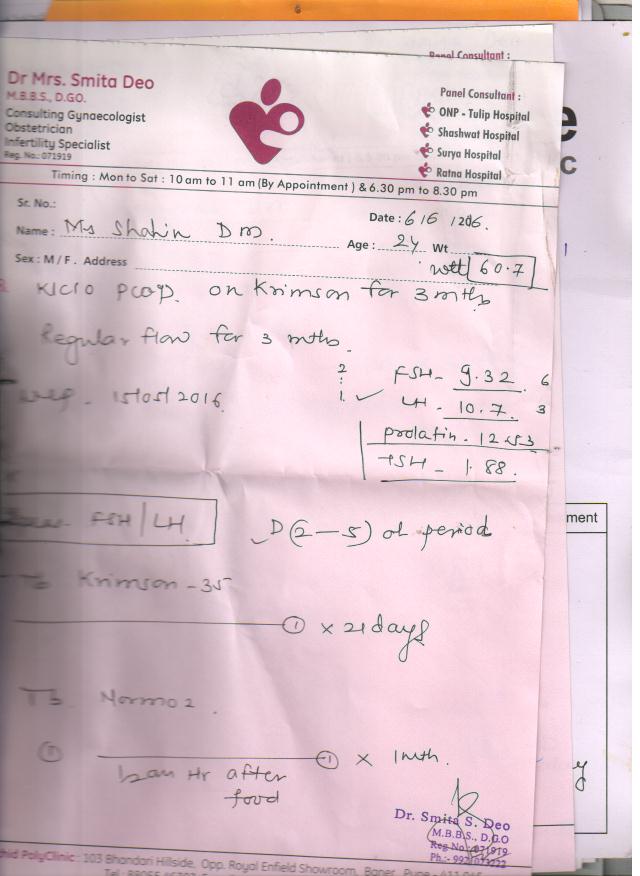 Panel Consultant :
Dr Mrs. Smita Deo
M.B.B.S., D.GO.
Consulting Gynaecologist
Obstetrician
Infertility Specialist
Reg. No.: 071919
Panel Consultant :
ONP - Tulip Hospital
Shashwat Hospital
Surya Hospital
Ratna Hospital
Timing : Mon to Sat : 10 am to 11 am (By Appointment ) & 6.30 pm to 8.30 pm
Sr. No.:
Date : 6/6
Name : Ms Shahin
Age : 24 Wt
Sex : M / F . Address
60.7
K/C/O PCOD. on Krimson for 3 mths
Regular flow for 3 mths.
FSH - 9.32 6
2 : 1. ✓ LH - 10.7 3
15/05/2016.
prolatin - 12.53
TSH - 1.88.
FSH / LH
D (2 — 5) of period
Tb Krimson - 35
① x 21 days
Tb Normoz.
① ① x 1 mth.
Hr after
food
Dr. Smita S. Deo
M.B.B.S., D.G.O
Reg No.: 071919
PolyClinic : 103 Bhandari Hillside, Opp. Royal Enfield Showroom, Baner, Pune
ment